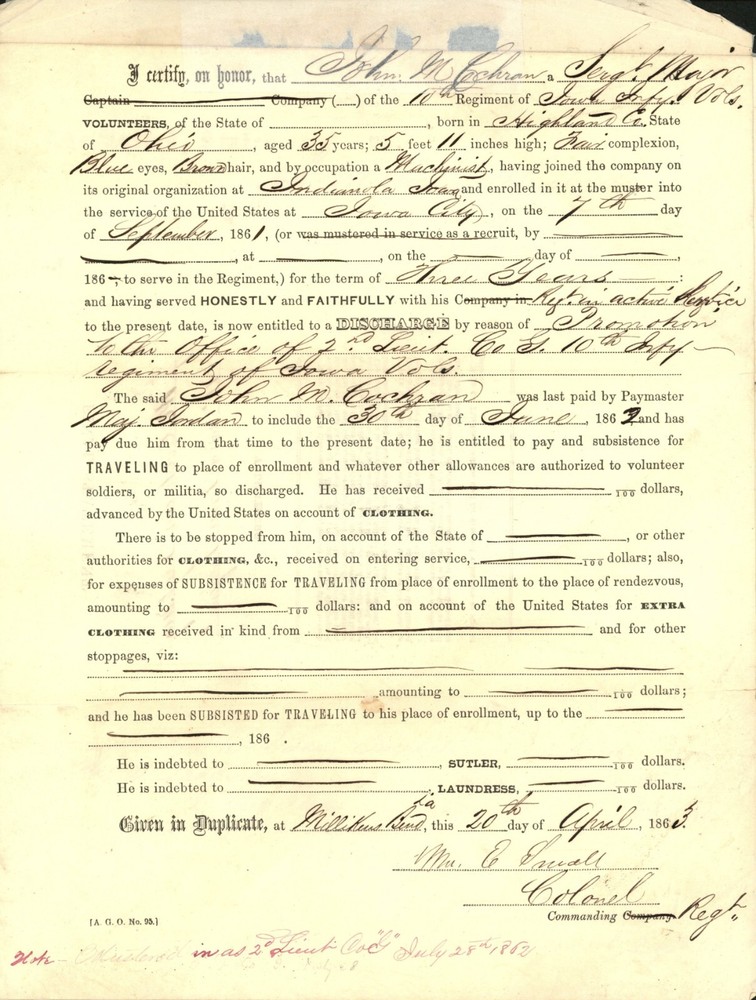 I certify, on honor, that John M Cochran a Sergt. Major
Captain Company ( ) of the 10th Regiment of Iowa Infy. Vols.
VOLUNTEERS, of the State of , born in Highland Co. State
of Ohio , aged 35 years; 5 feet 11 inches high; Fair complexion,
Blue eyes, Brown hair, and by occupation a Machinist, having joined the company on
its original organization at Indianola Iowa and enrolled in it at the muster into
the service of the United States at Iowa City, on the 7th day
of September, 1861, (or was mustered in service as a recruit, by
, at , on the day of ,
186 , to serve in the Regiment,) for the term of Three Years :
and having served HONESTLY and FAITHFULLY with his Company in Regt. in active Service
to the present date, is now entitled to a DISCHARGE by reason of Promotion
to the Office of 2nd Lieut. Co G. 10th Infy
regiment of Iowa Vols.
The said John M. Cochran was last paid by Paymaster
Maj. Jordan to include the 30th day of June, 1862 and has
pay due him from that time to the present date; he is entitled to pay and subsistence for
TRAVELING to place of enrollment and whatever other allowances are authorized to volunteer
soldiers, or militia, so discharged. He has received 100 dollars,
advanced by the United States on account of CLOTHING.
There is to be stopped from him, on account of the State of , or other
authorities for CLOTHING, &c., received on entering service, 100 dollars; also,
for expenses of SUBSISTENCE for TRAVELING from place of enrollment to the place of rendezvous,
amounting to 100 dollars: and on account of the United States for EXTRA
CLOTHING received in kind from and for other
stoppages, viz:
amounting to 100 dollars;
and he has been SUBSISTED for TRAVELING to his place of enrollment, up to the
, 186 .
He is indebted to , SUTLER, 100 dollars.
He is indebted to , LAUNDRESS, 100 dollars.
Given in Duplicate, at Millikens Bend, La this 20th day of April, 1863.
Wm. E Small
Colonel
Commanding Company Regt.
[A. G. O. No. 95.]
Note - Mustered in as 2d Lieut Co "G" July 28th 1862